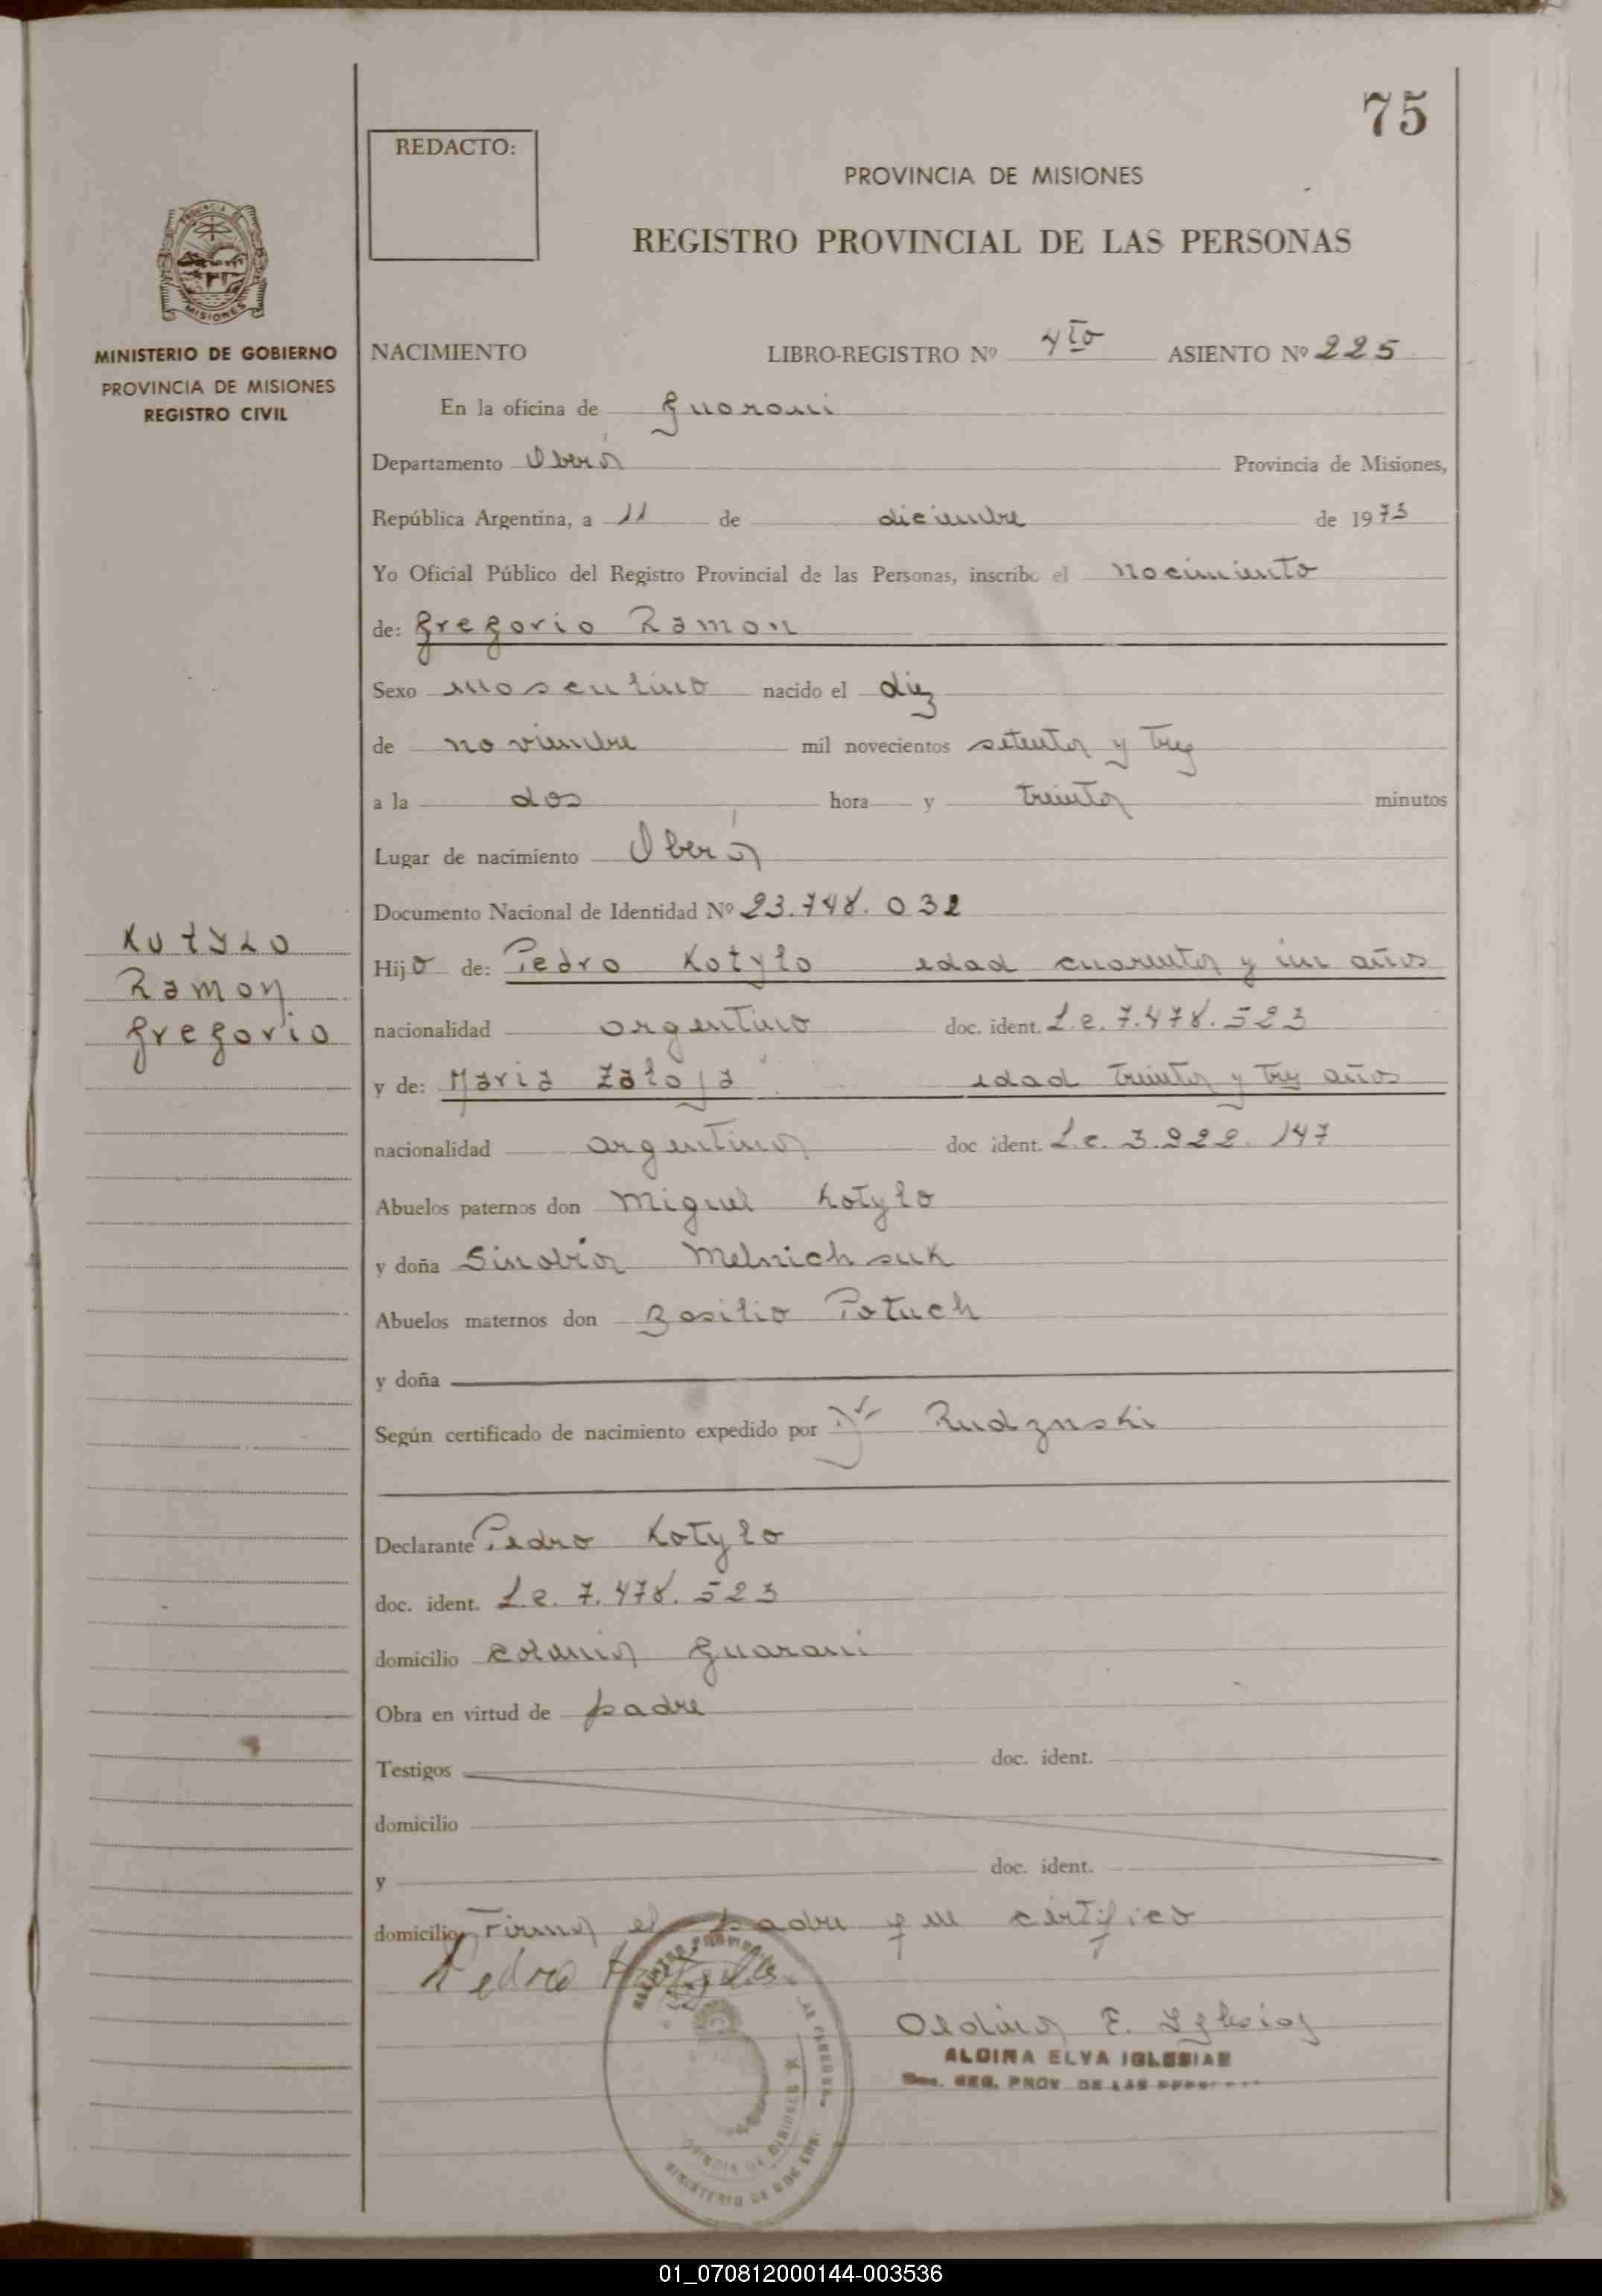 75
REDACTO:
PROVINCIA DE MISIONES
REGISTRO PROVINCIAL DE LAS PERSONAS
MINISTERIO DE GOBIERNO
PROVINCIA DE MISIONES
REGISTRO CIVIL
NACIMIENTO LIBRO-REGISTRO Nº 4to ASIENTO Nº 225
En la oficina de Guarani
Departamento Oberá Provincia de Misiones,
República Argentina, a 11 de diciembre de 1973
Yo Oficial Público del Registro Provincial de las Personas, inscribo el nacimiento
de: Gregorio Ramon
Sexo masculino nacido el diez
de noviembre mil novecientos setenta y tres
a la dos hora y treinta minutos
Lugar de nacimiento Oberá
Documento Nacional de Identidad Nº 23.748.032
KOTYLO
Ramon
Gregorio
Hijo de: Pedro Kotylo edad cuarenta y un años
nacionalidad argentino doc. ident. L.e. 7.478.523
y de: Maria Zaloja edad treinta y tres años
nacionalidad argentina doc ident. L.c. 3.922.147
Abuelos paternos don Miguel Kotylo
y doña Sinovia Melnichsuk
Abuelos maternos don Basilio Potuch
y doña
Según certificado de nacimiento expedido por Dr Rudznski
Declarante Pedro Kotylo
doc. ident. L.e. 7.478.523
domicilio colonia Guarani
Obra en virtud de padre
Testigos doc. ident.
domicilio
y doc. ident.
domicilio Firma el padre que certifico
Pedro Kotylo
Aldina E. Iglesias
ALDINA ELVA IGLESIAS
REG. PROV. DE LAS
PROVINCIA DE MISIONES
MINISTERIO DE GOB
01_070812000144-003536